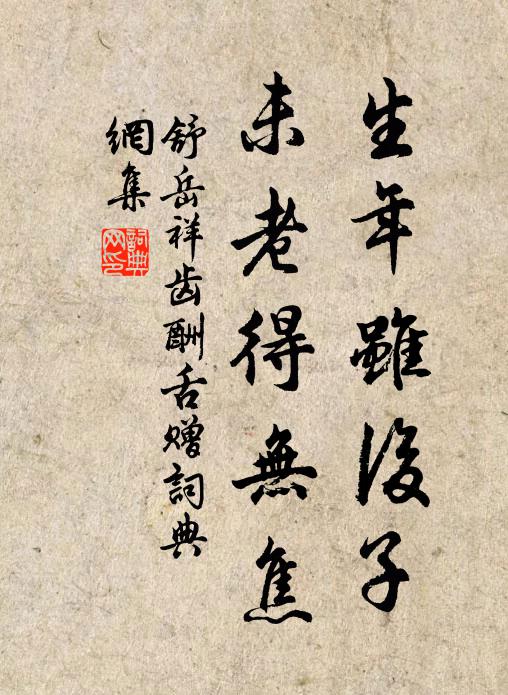 生年雖後子
未老得無焦
舒岳祥齿酬舌赠詞典
網集
詞典
网印